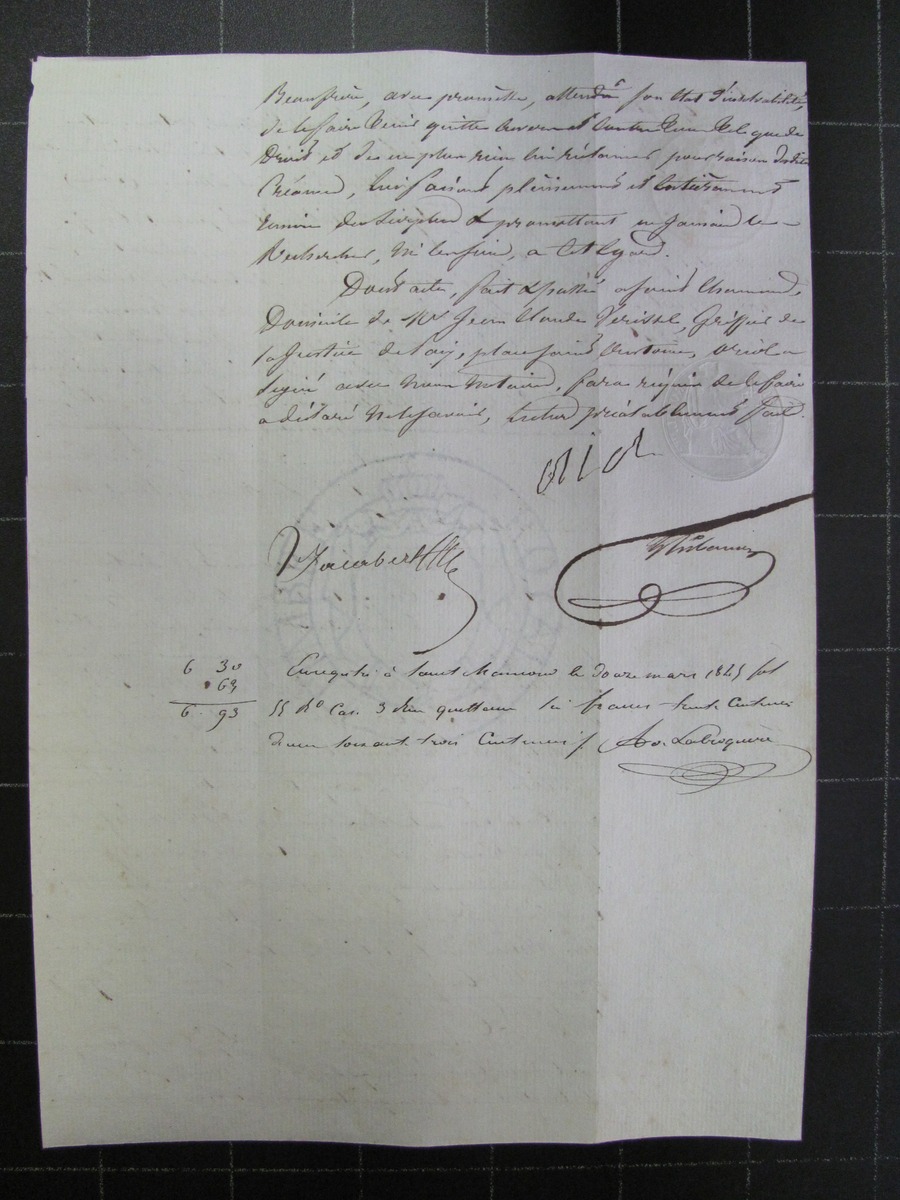 Beaufrère, avec promesse, attendu son état d'insolvabilité,
de le faire tenir quitte envers et contre tous tel que de
Droit et de ne plus rien lui réclamer pour raison desdites
Créances, lui faisant pleinement et entièrement
remise du Surplus & promettant ne jamais le
Rechercher, ni l'ensuivre, a cet égard.
Dont acte, fait & passé a Saint Chamond,
Domicile de Mr Jean Claude Greffier de
la Justice de Paix, place Saint Oriol a
signé avec nous Notaires, fara requis de le faire
a déclaré ne le savoir, lecture préalablement faite.
oriol
Jaubert
Enregistré à Saint Chamond le douze mars 1845 fol
55 Ro Cas. 3 Reçu quittance six francs trente centimes
dixième soixante trois centimes / Labroquère
6 30
63
6 93